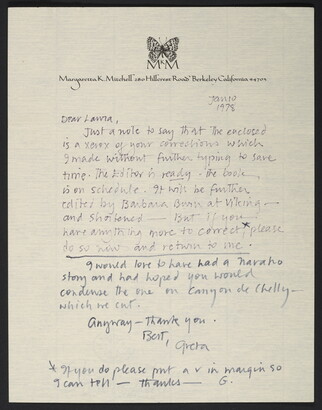 M K M
Margaretta K. Mitchell 280 Hillcrest Road Berkeley California 94705
Jan 10
1978
Dear Laura,
Just a note to say that the enclosed
is a xerox of your corrections which
I made without further typing to save
time. The Editor is ready. The book
is on schedule. It will be further
edited by Barbara Burn at Viking —
and shortened — But if you
have anything more to correct* please
do so now and return to me.
I would love to have had a Navaho
story and had hoped you would
condense the one on Canyon de Chelly —
which we cut.
Anyway — thank you.
Best,
Greta
* If you do please put a v in margin so
I can tell — thanks — G.